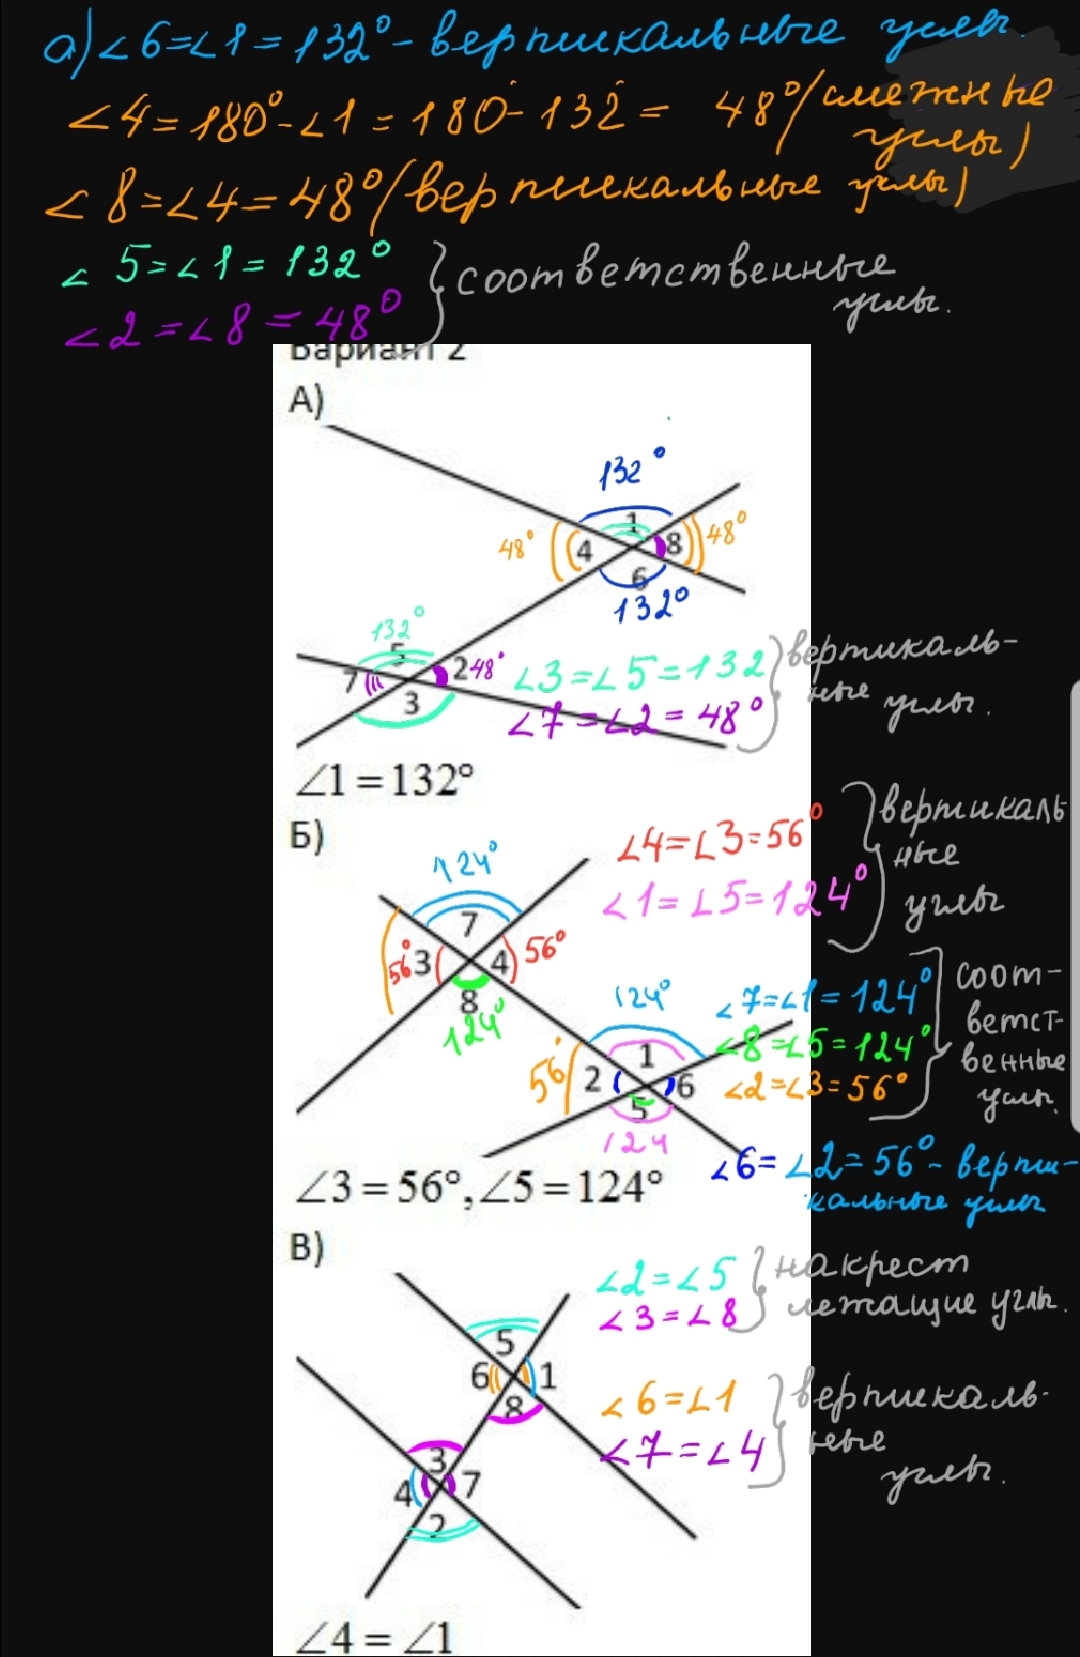 а) ∠6=∠1=132°- вертикальные углы.
∠4=180°-∠1=180°-132°= 48° (смежные углы)
∠8=∠4=48° (вертикальные углы)
∠5=∠1=132°
∠2=∠8=48°
} соответственные углы.
Вариант 2
А)
132°
1
48°
4
8
48°
6
132°
132°
5
7
2
48°
3
∠3=∠5=132
∠7=∠2=48°
} вертикальные углы.
∠1=132°
Б)
∠4=∠3=56°
∠1=∠5=124°
} вертикальные углы
124°
7
56°
3
4
56°
8
124°
124°
1
56°
2
6
5
124
∠7=∠1=124°
∠8=∠5=124°
∠2=∠3=56°
} соответственные углы.
∠3=56°,∠5=124°
∠6=∠2=56°- вертикальные углы
В)
∠2=∠5
∠3=∠8
} накрест лежащие углы.
5
6
1
8
3
4
7
2
∠6=∠1
∠7=∠4
} вертикальные углы.
∠4=∠1